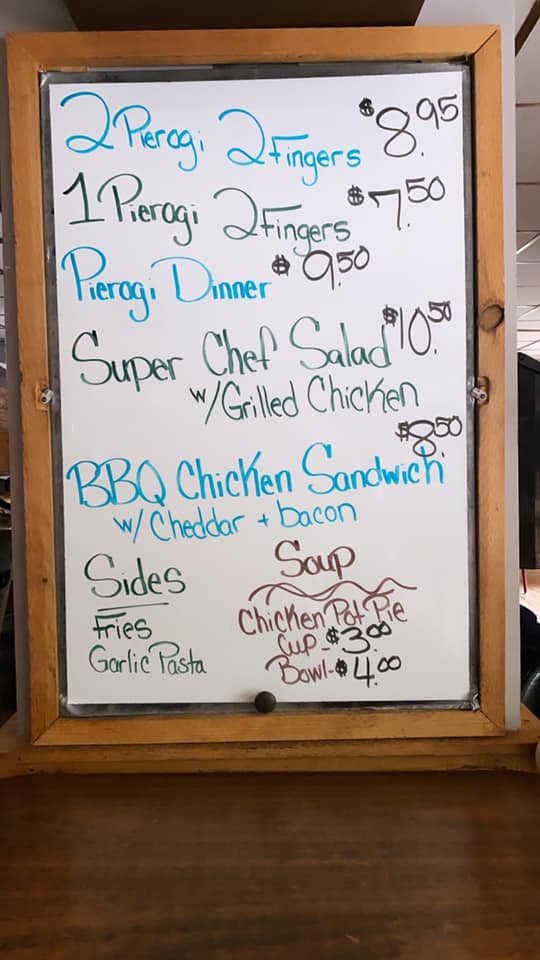 2 Pierogi 2 Fingers $8.95
1 Pierogi 2 Fingers $7.50
Pierogi Dinner $9.50
Super Chef Salad $10.50
w/Grilled Chicken
$8.50
BBQ Chicken Sandwich
w/ Cheddar + bacon
Sides
Fries
Garlic Pasta
Soup
Chicken Pot Pie
Cup-$3.00
Bowl-$4.00